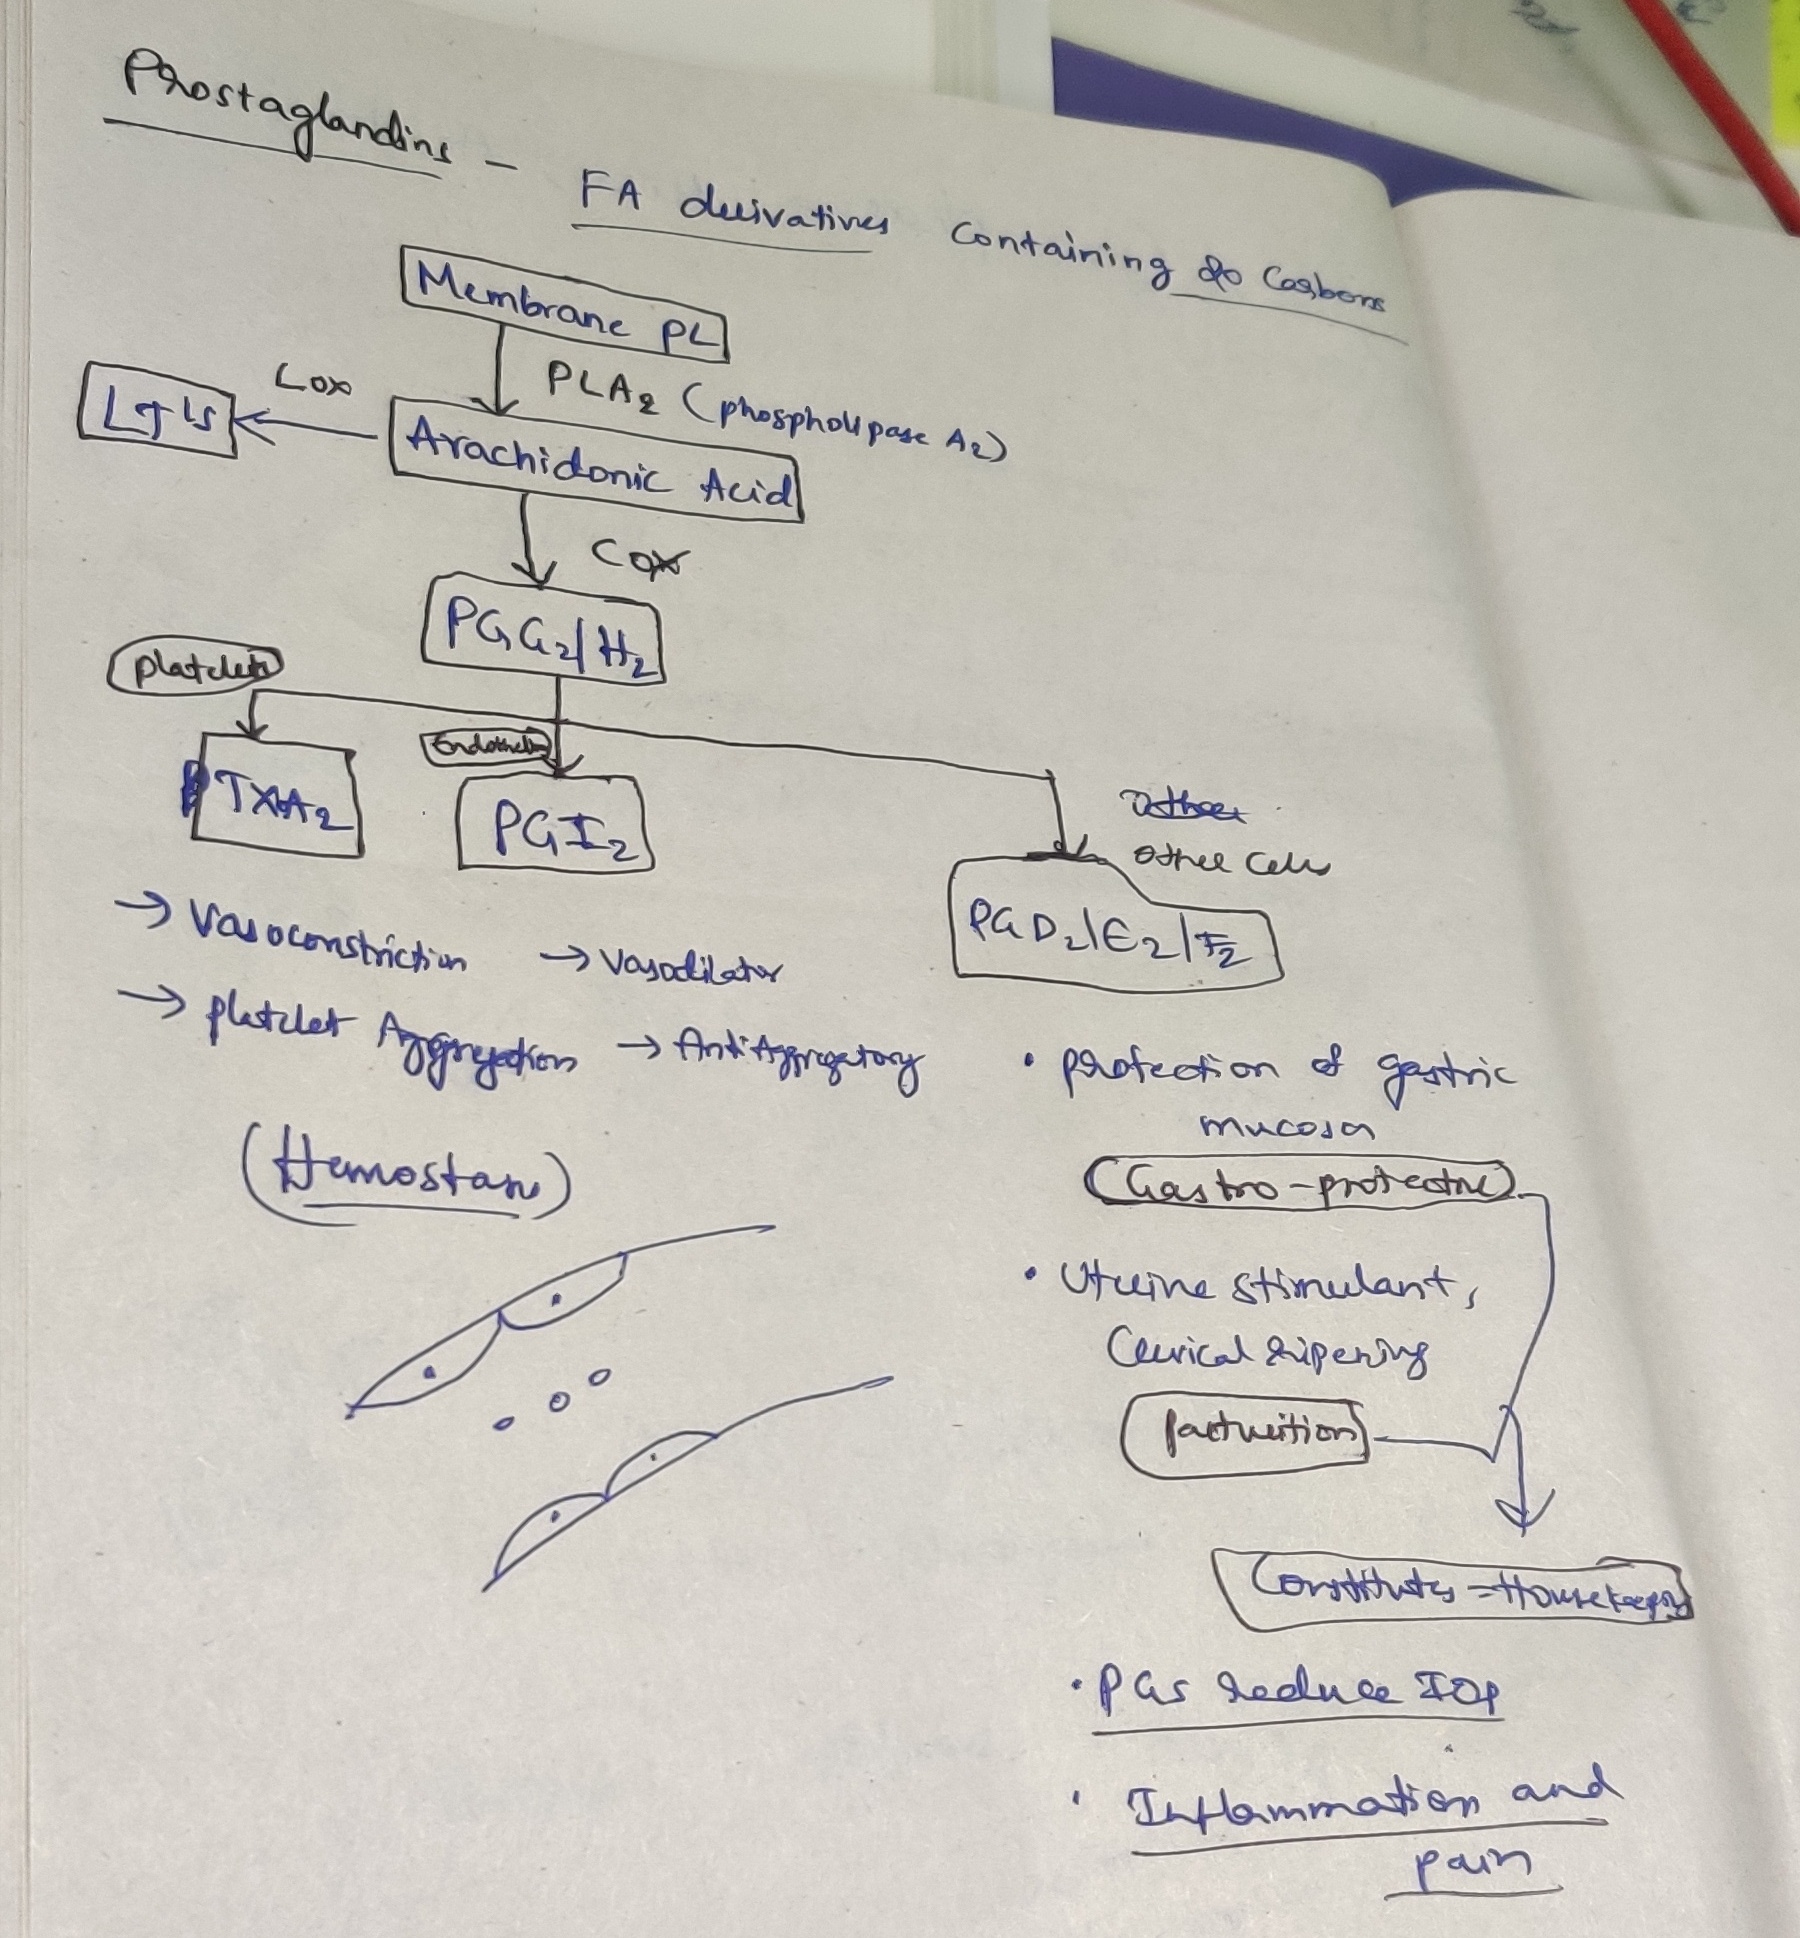 Prostaglandins -
FA derivatives containing 20 Carbons
Membrane PL
PLA2 (phospholipase A2)
LOX
LT's
Arachidonic Acid
COX
PGG2/H2
platelets
Endothelium
TXA2
PGI2
Other
Other cells
PGD2/E2/F2
→ Vasoconstriction
→ Vasodilator
→ platelet Aggregation
→ AntiAggregatory
(Hemostasis)
• protection of gastric
mucosa
(Gastro-protective)
• Uterine stimulant,
Cervical ripening
parturition
Constitutes = Housekeeping
• PGs reduce IOP
• Inflammation and
pain